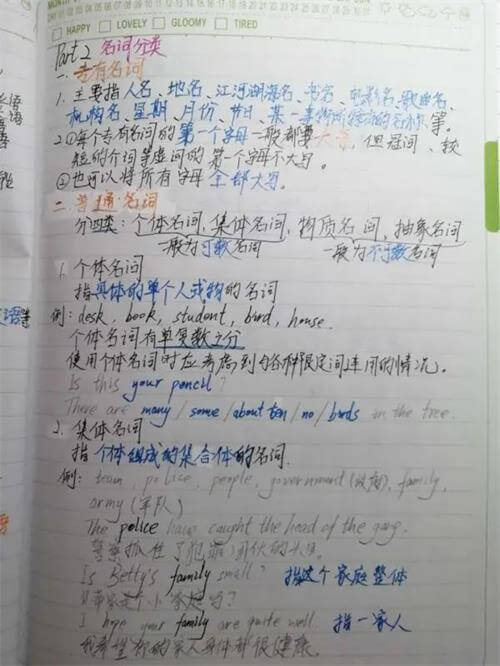 HAPPY LOVELY GLOOMY TIRED
Part 2 名词分类
一. 专有名词
1. 主要指人名、地名、江河湖海名、书名、电影名、歌曲名、
机构名、星期、月份、节日、某一事物所特有的名称等。
2. ①每个专有名词的第一个字母一般都要大写，但冠词、较
短的介词等虚词的第一个字母不大写。
②也可以将所有字母全部大写。
二. 普通名词
分四类：个体名词、集体名词、物质名词、抽象名词
一般为可数名词 一般为不可数名词
1. 个体名词
指具体的单个人或物的名词
例：desk, book, student, bird, house.
个体名词有单复数之分
使用个体名词时应考虑到与各种限定词连用的情况。
Is this your pencil?
There are many/some/about ten/no/birds in the tree.
2. 集体名词
指个体组成的集合体的名词.
例：team, police, people, government(政府), family,
army(军队)
The police have caught the head of the gang.
警察抓住了犯罪团伙的头目。
Is Betty's family small? 指这个家庭整体
贝蒂家是个小家庭吗？
I hope your family are quite well. 指一家人
我希望你的家人身体都很健康.